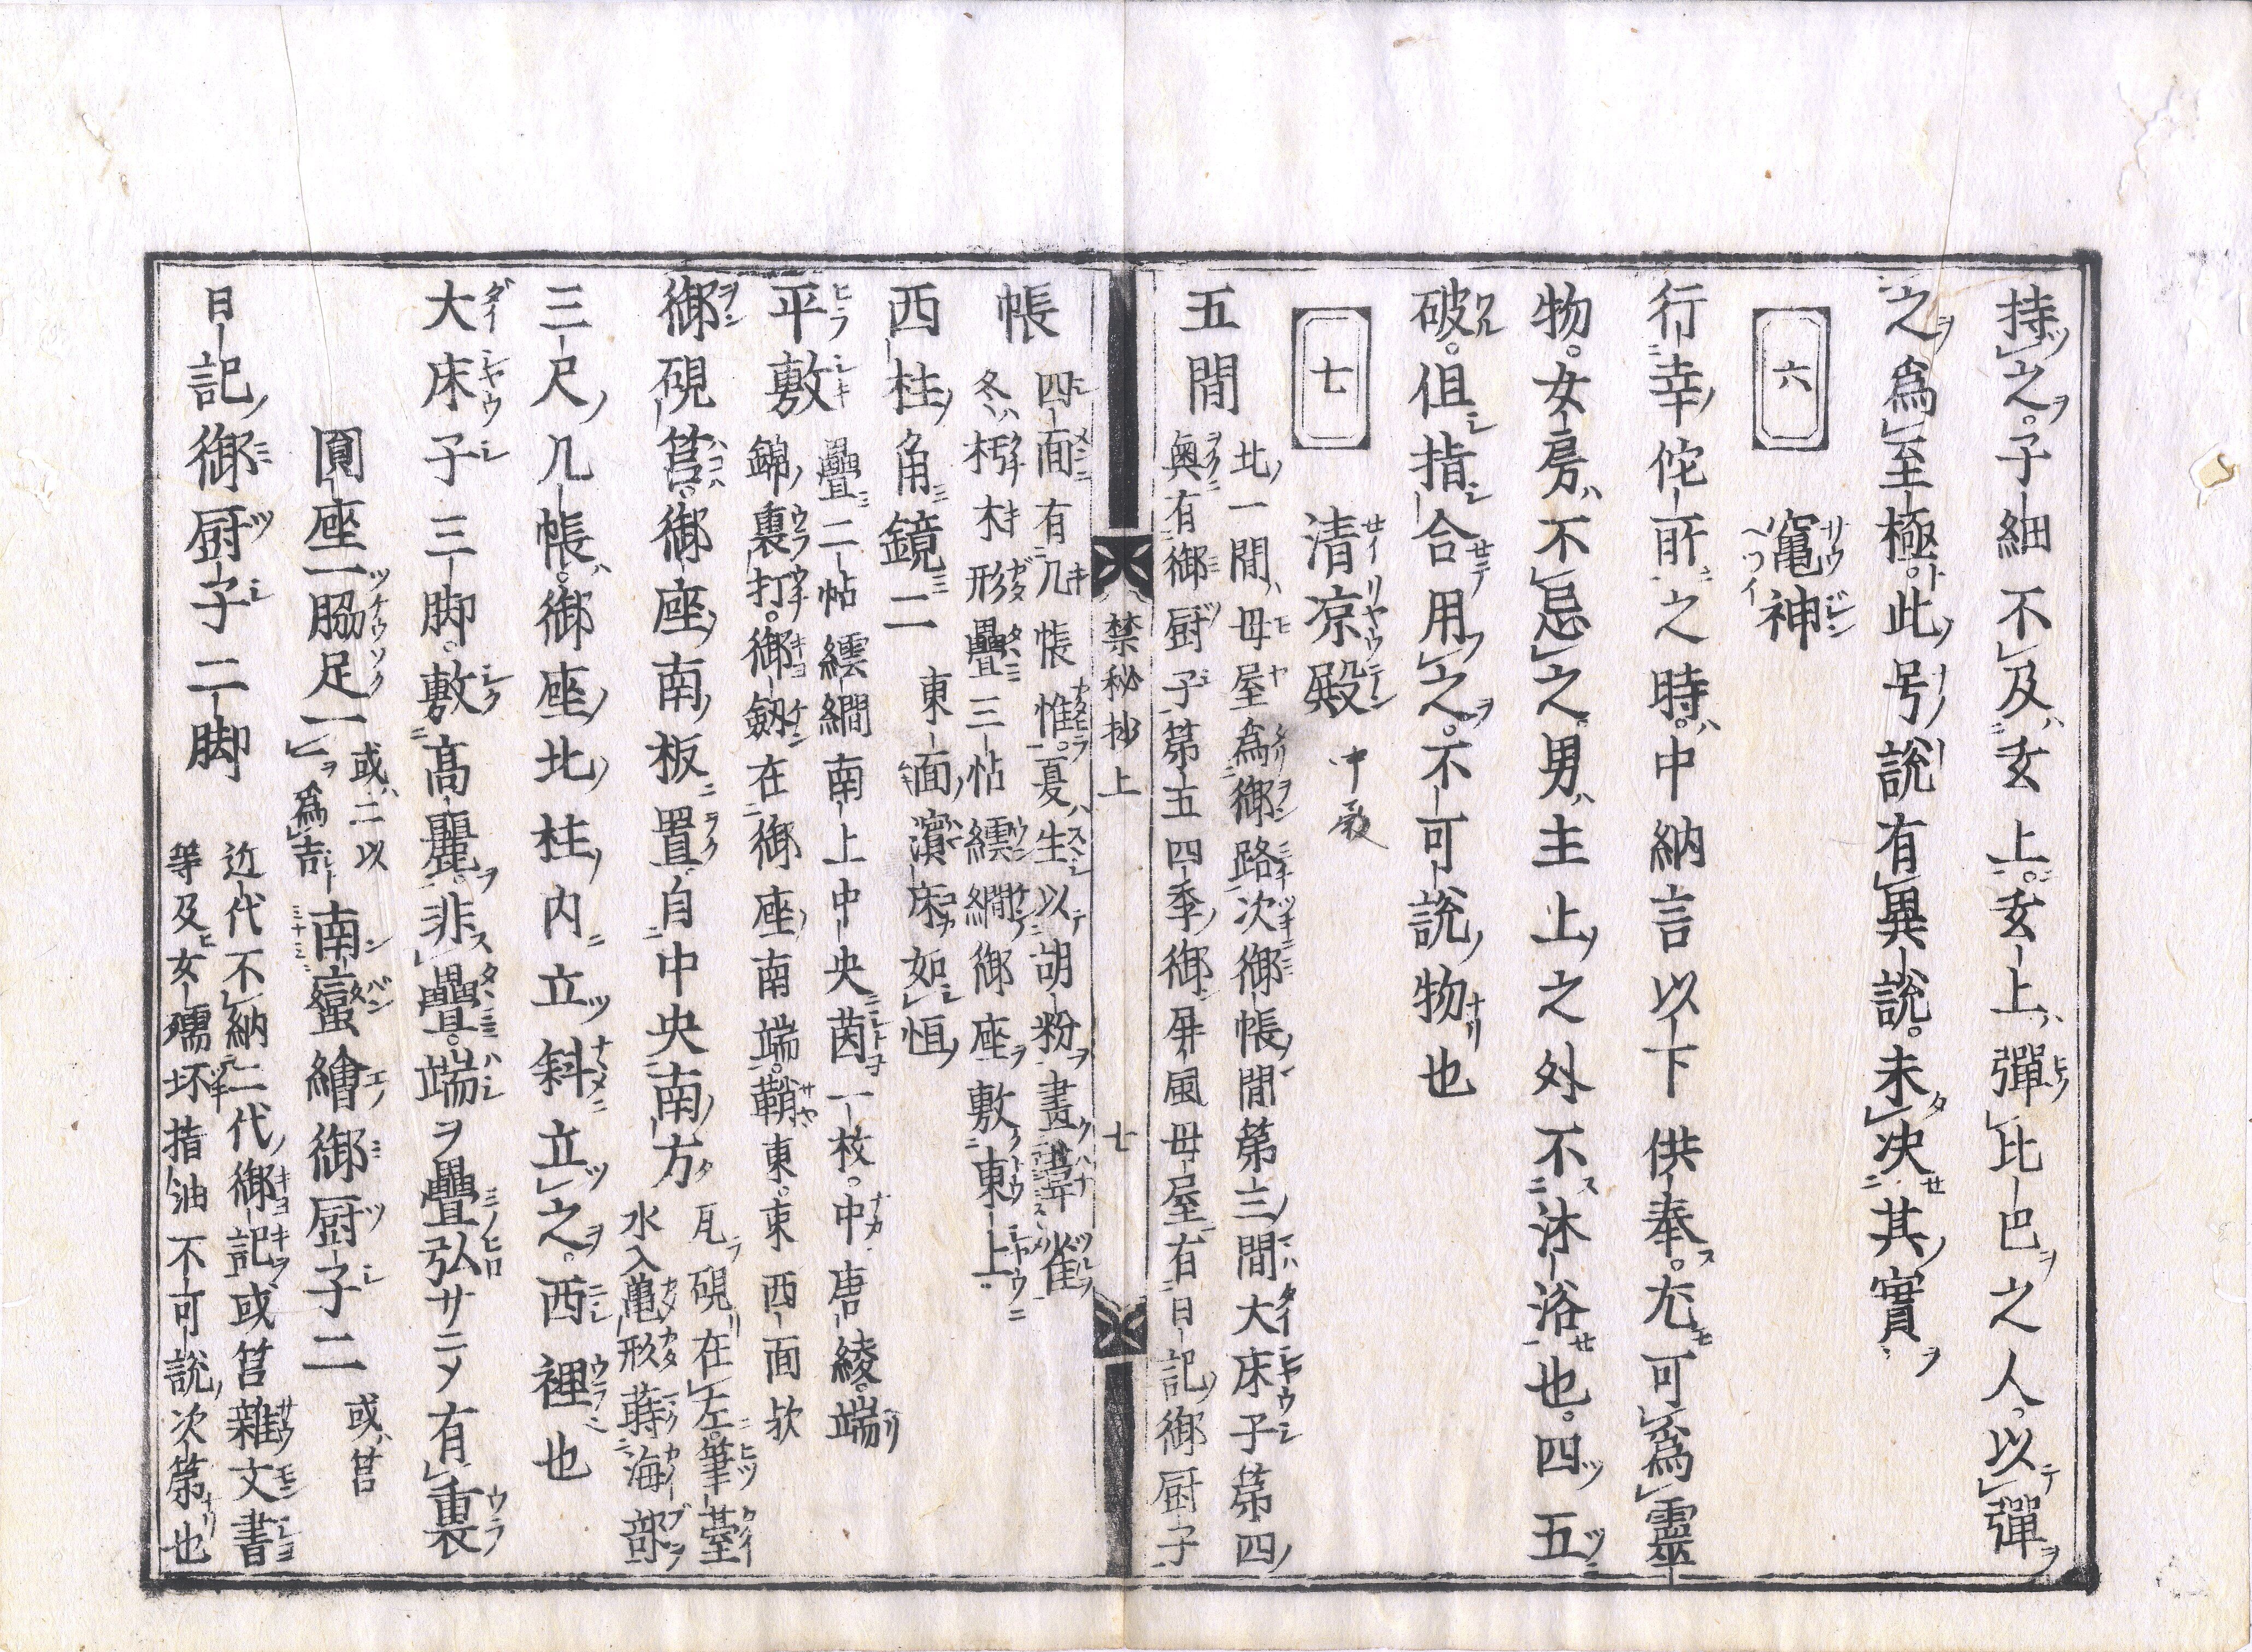 持之。子細不及玄上。玄上彈比巴之人以彈
之為至極。此号說有異說。未决其實
六 竈神
行幸佗所之時。中納言以下供奉。尤可為靈
物。女房不忌之。男主上之外不沐浴也。四五
破。但指合用之。不可說物也
七 清凉殿 中殿
五間 北一間母屋為御路次御帳間第三間大床子第四
奧有御厨子第五四季御屏風母屋有日記御厨子
禁秘抄上 七
帳 四面有几帳惟。夏生以胡粉畫
冬朽木形疊三帖繧繝御座敷東上
西柱角鏡二 東面濱床如恒
平敷 疊二帖繧繝南上中央茵一枚。中唐綾端
錦裏打。御劔在御座南端。鞘東。東西面歟
御硯筥。御座南板置自中央南方 瓦硯在左。筆臺
水入龜形蒔海部
三尺几帳。御座北柱内立斜立之。西裡也
大床子三脚。敷高麗。非疊。端ヲ疊弘サニヲ有裏
圓座一脇足一 或二以
一為吉 南蠻繪御厨子二 或筥
日記御厨子二脚 近代不納二代御記或筥雜文書
等及女孺坏指油不可說次第也